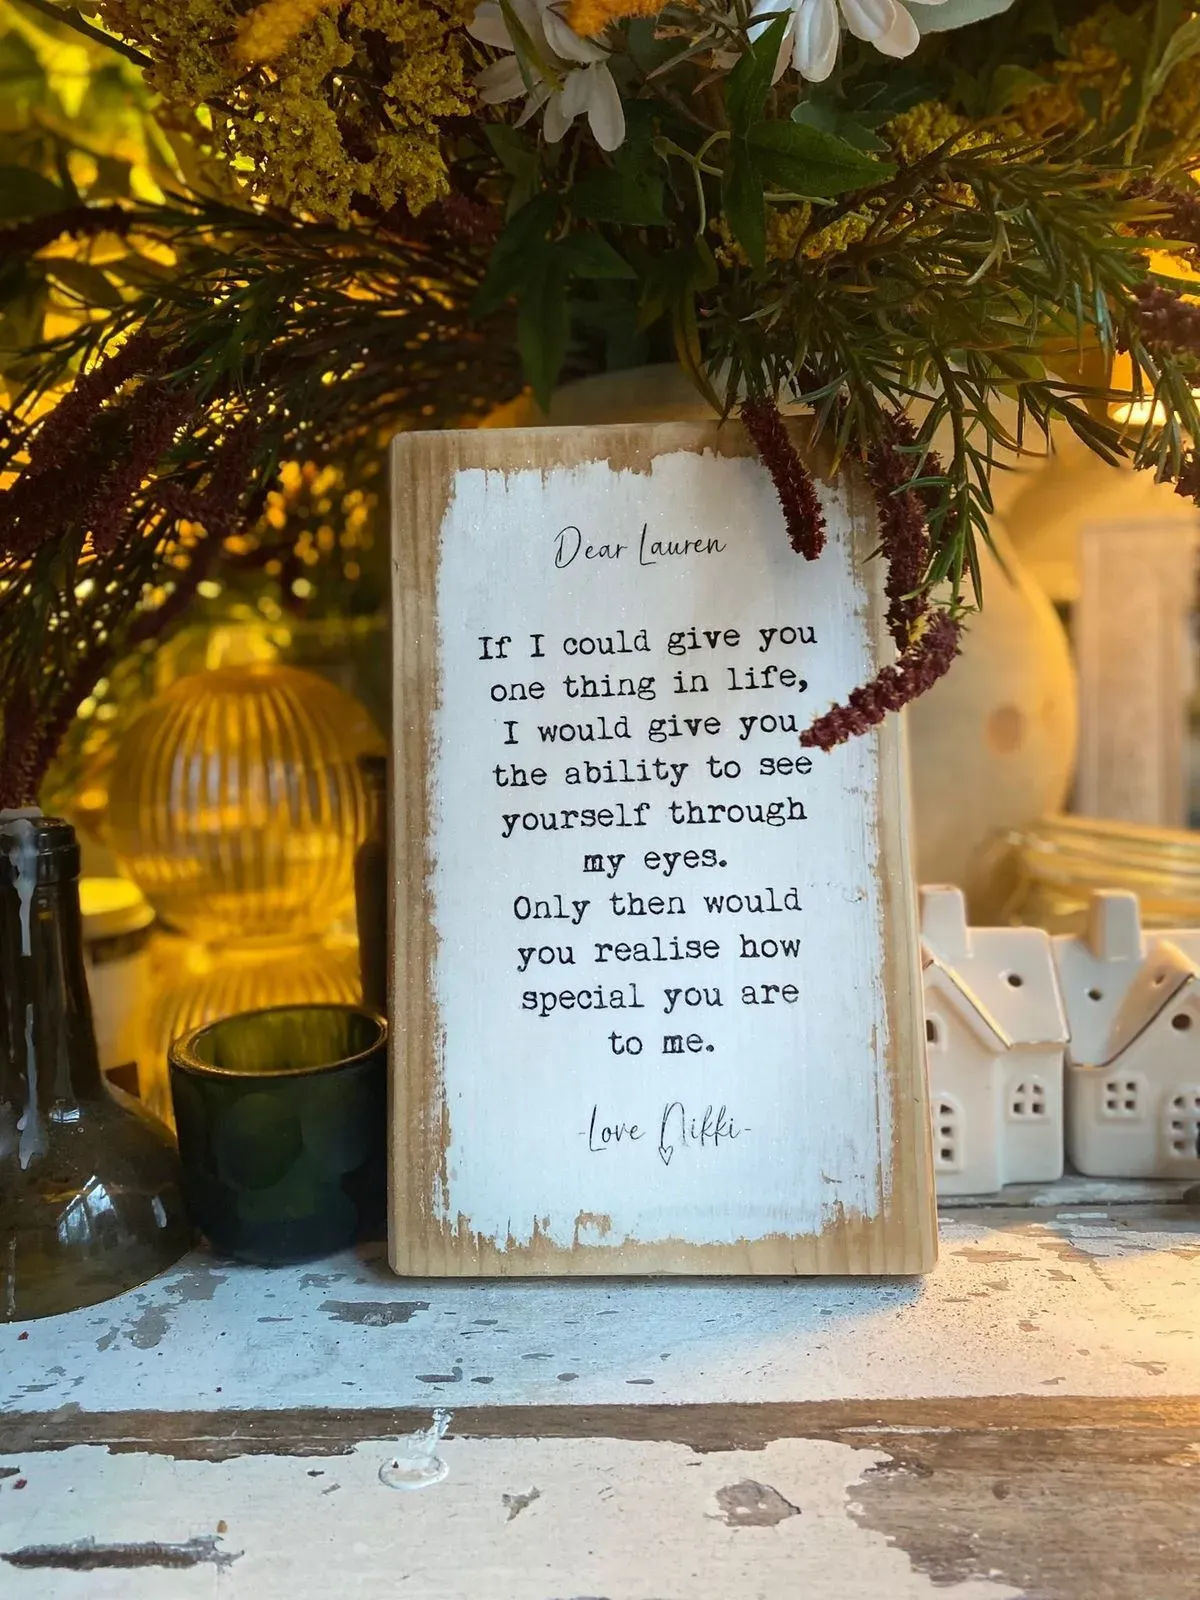 Dear Lauren
If I could give you
one thing in life,
I would give you
the ability to see
yourself through
my eyes.
Only then would
you realise how
special you are
to me.
-Love Nikki-